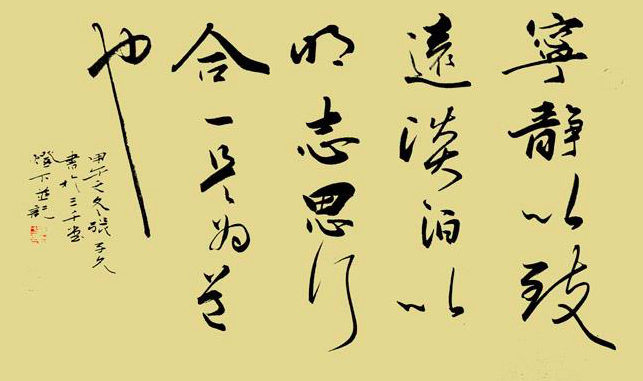 寧静以致
遠淡泊以
明志思行
合一是为道
也
甲午之冬張子久
書於三千堂
燈下並記